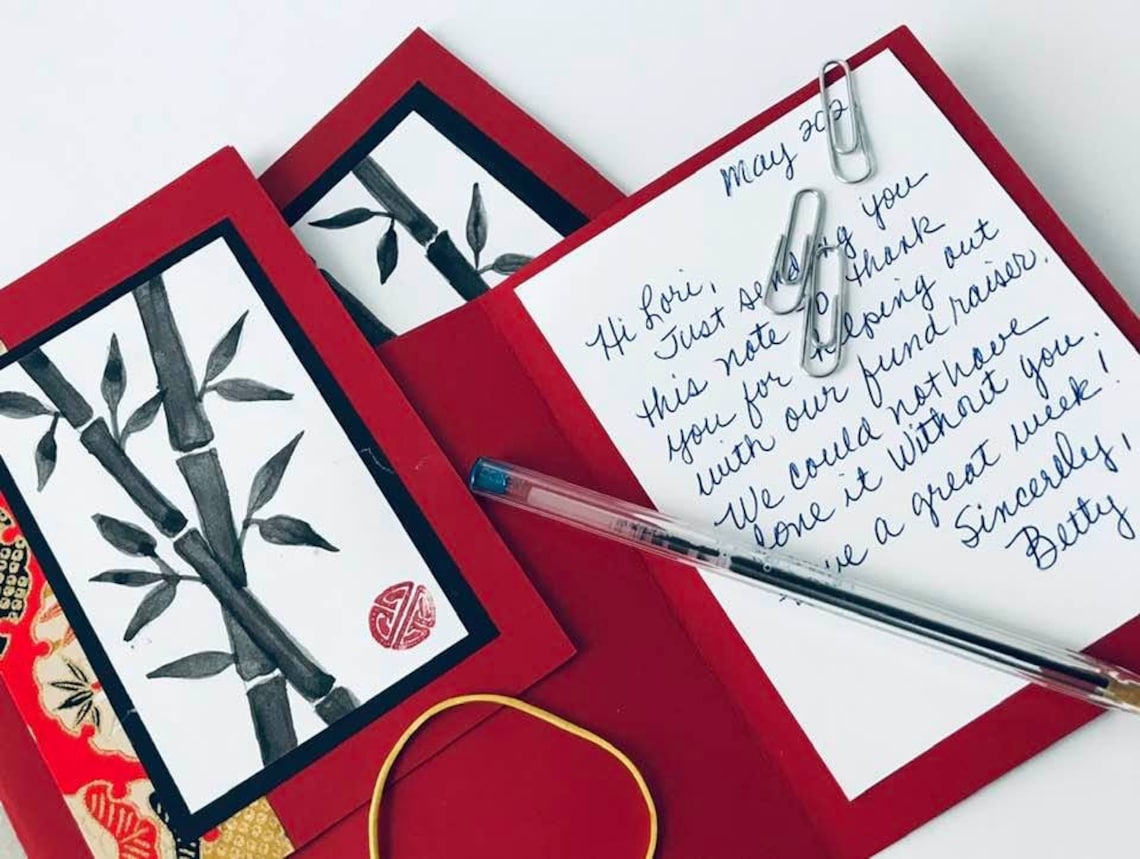 May 202
Hi Lori,
Just sending you
this note to thank
you for helping out
with our fund raiser.
We could not have
done it without you.
a great week!
Sincerely,
Betty